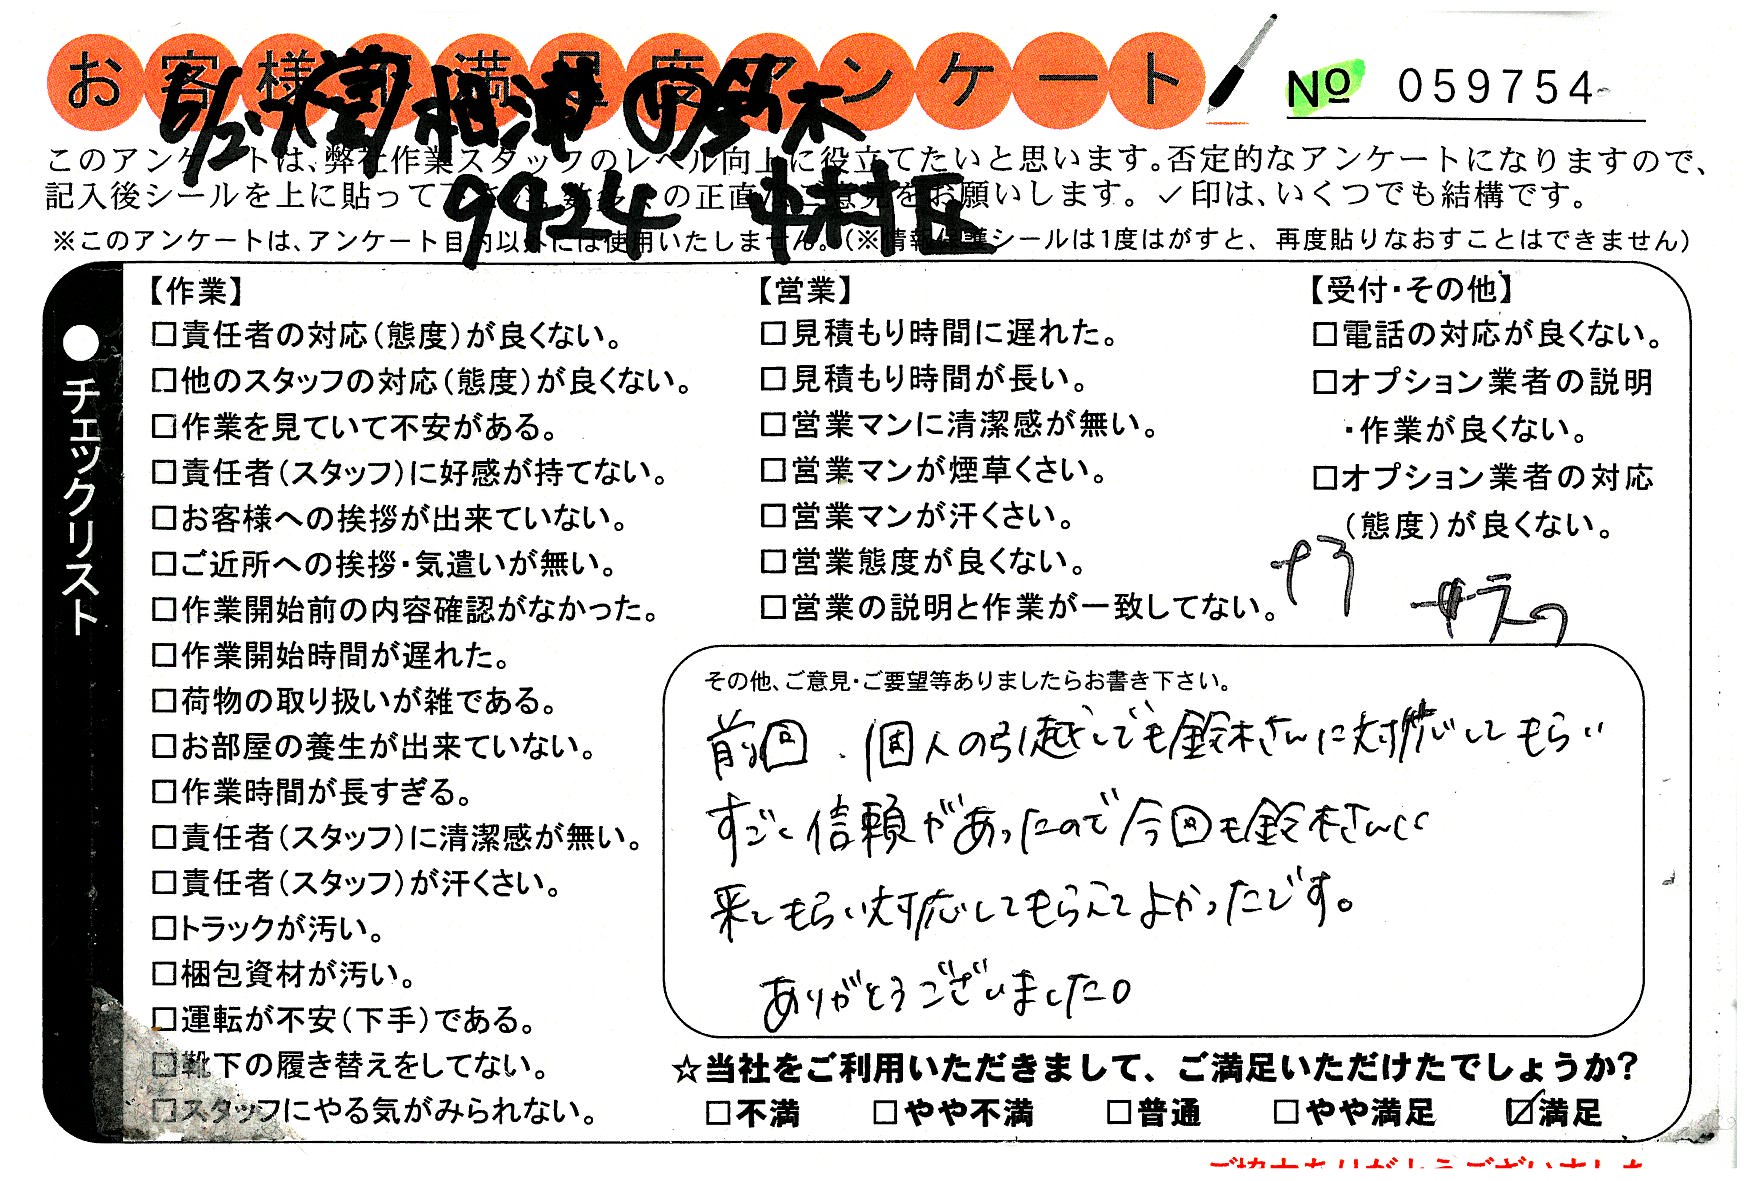 お客様不満足度アンケート
No 059754
鈴木
9424 中村区
このアンケートは、弊社作業スタッフのレベル向上に役立てたいと思います。否定的なアンケートになりますので、
記入後シールを上に貼って下さい。数多くの正直なご意見をお願いします。✓印は、いくつでも結構です。
※このアンケートは、アンケート目的以外には使用いたしません。(※情報保護シールは1度はがすと、再度貼りなおすことはできません)
●チェックリスト
【作業】
□責任者の対応(態度)が良くない。
□他のスタッフの対応(態度)が良くない。
□作業を見ていて不安がある。
□責任者(スタッフ)に好感が持てない。
□お客様への挨拶が出来ていない。
□ご近所への挨拶・気遣いが無い。
□作業開始前の内容確認がなかった。
□作業開始時間が遅れた。
□荷物の取り扱いが雑である。
□お部屋の養生が出来ていない。
□作業時間が長すぎる。
□責任者(スタッフ)に清潔感が無い。
□責任者(スタッフ)が汗くさい。
□トラックが汚い。
□梱包資材が汚い。
□運転が不安(下手)である。
□靴下の履き替えをしてない。
□スタッフにやる気がみられない。
【営業】
□見積もり時間に遅れた。
□見積もり時間が長い。
□営業マンに清潔感が無い。
□営業マンが煙草くさい。
□営業マンが汗くさい。
□営業態度が良くない。
□営業の説明と作業が一致してない。
【受付・その他】
□電話の対応が良くない。
□オプション業者の説明
・作業が良くない。
□オプション業者の対応
(態度)が良くない。
その他、ご意見・ご要望等ありましたらお書き下さい。
前回、個人の引越しでも鈴木さんに対応してもらい
すごく信頼があったので今回も鈴木さんに
来てもらい対応してもらえてよかったです。
ありがとうございました。
☆当社をご利用いただきまして、ご満足いただけたでしょうか?
□不満 □やや不満 □普通 □やや満足 ☑満足
ご協力ありがとうございました